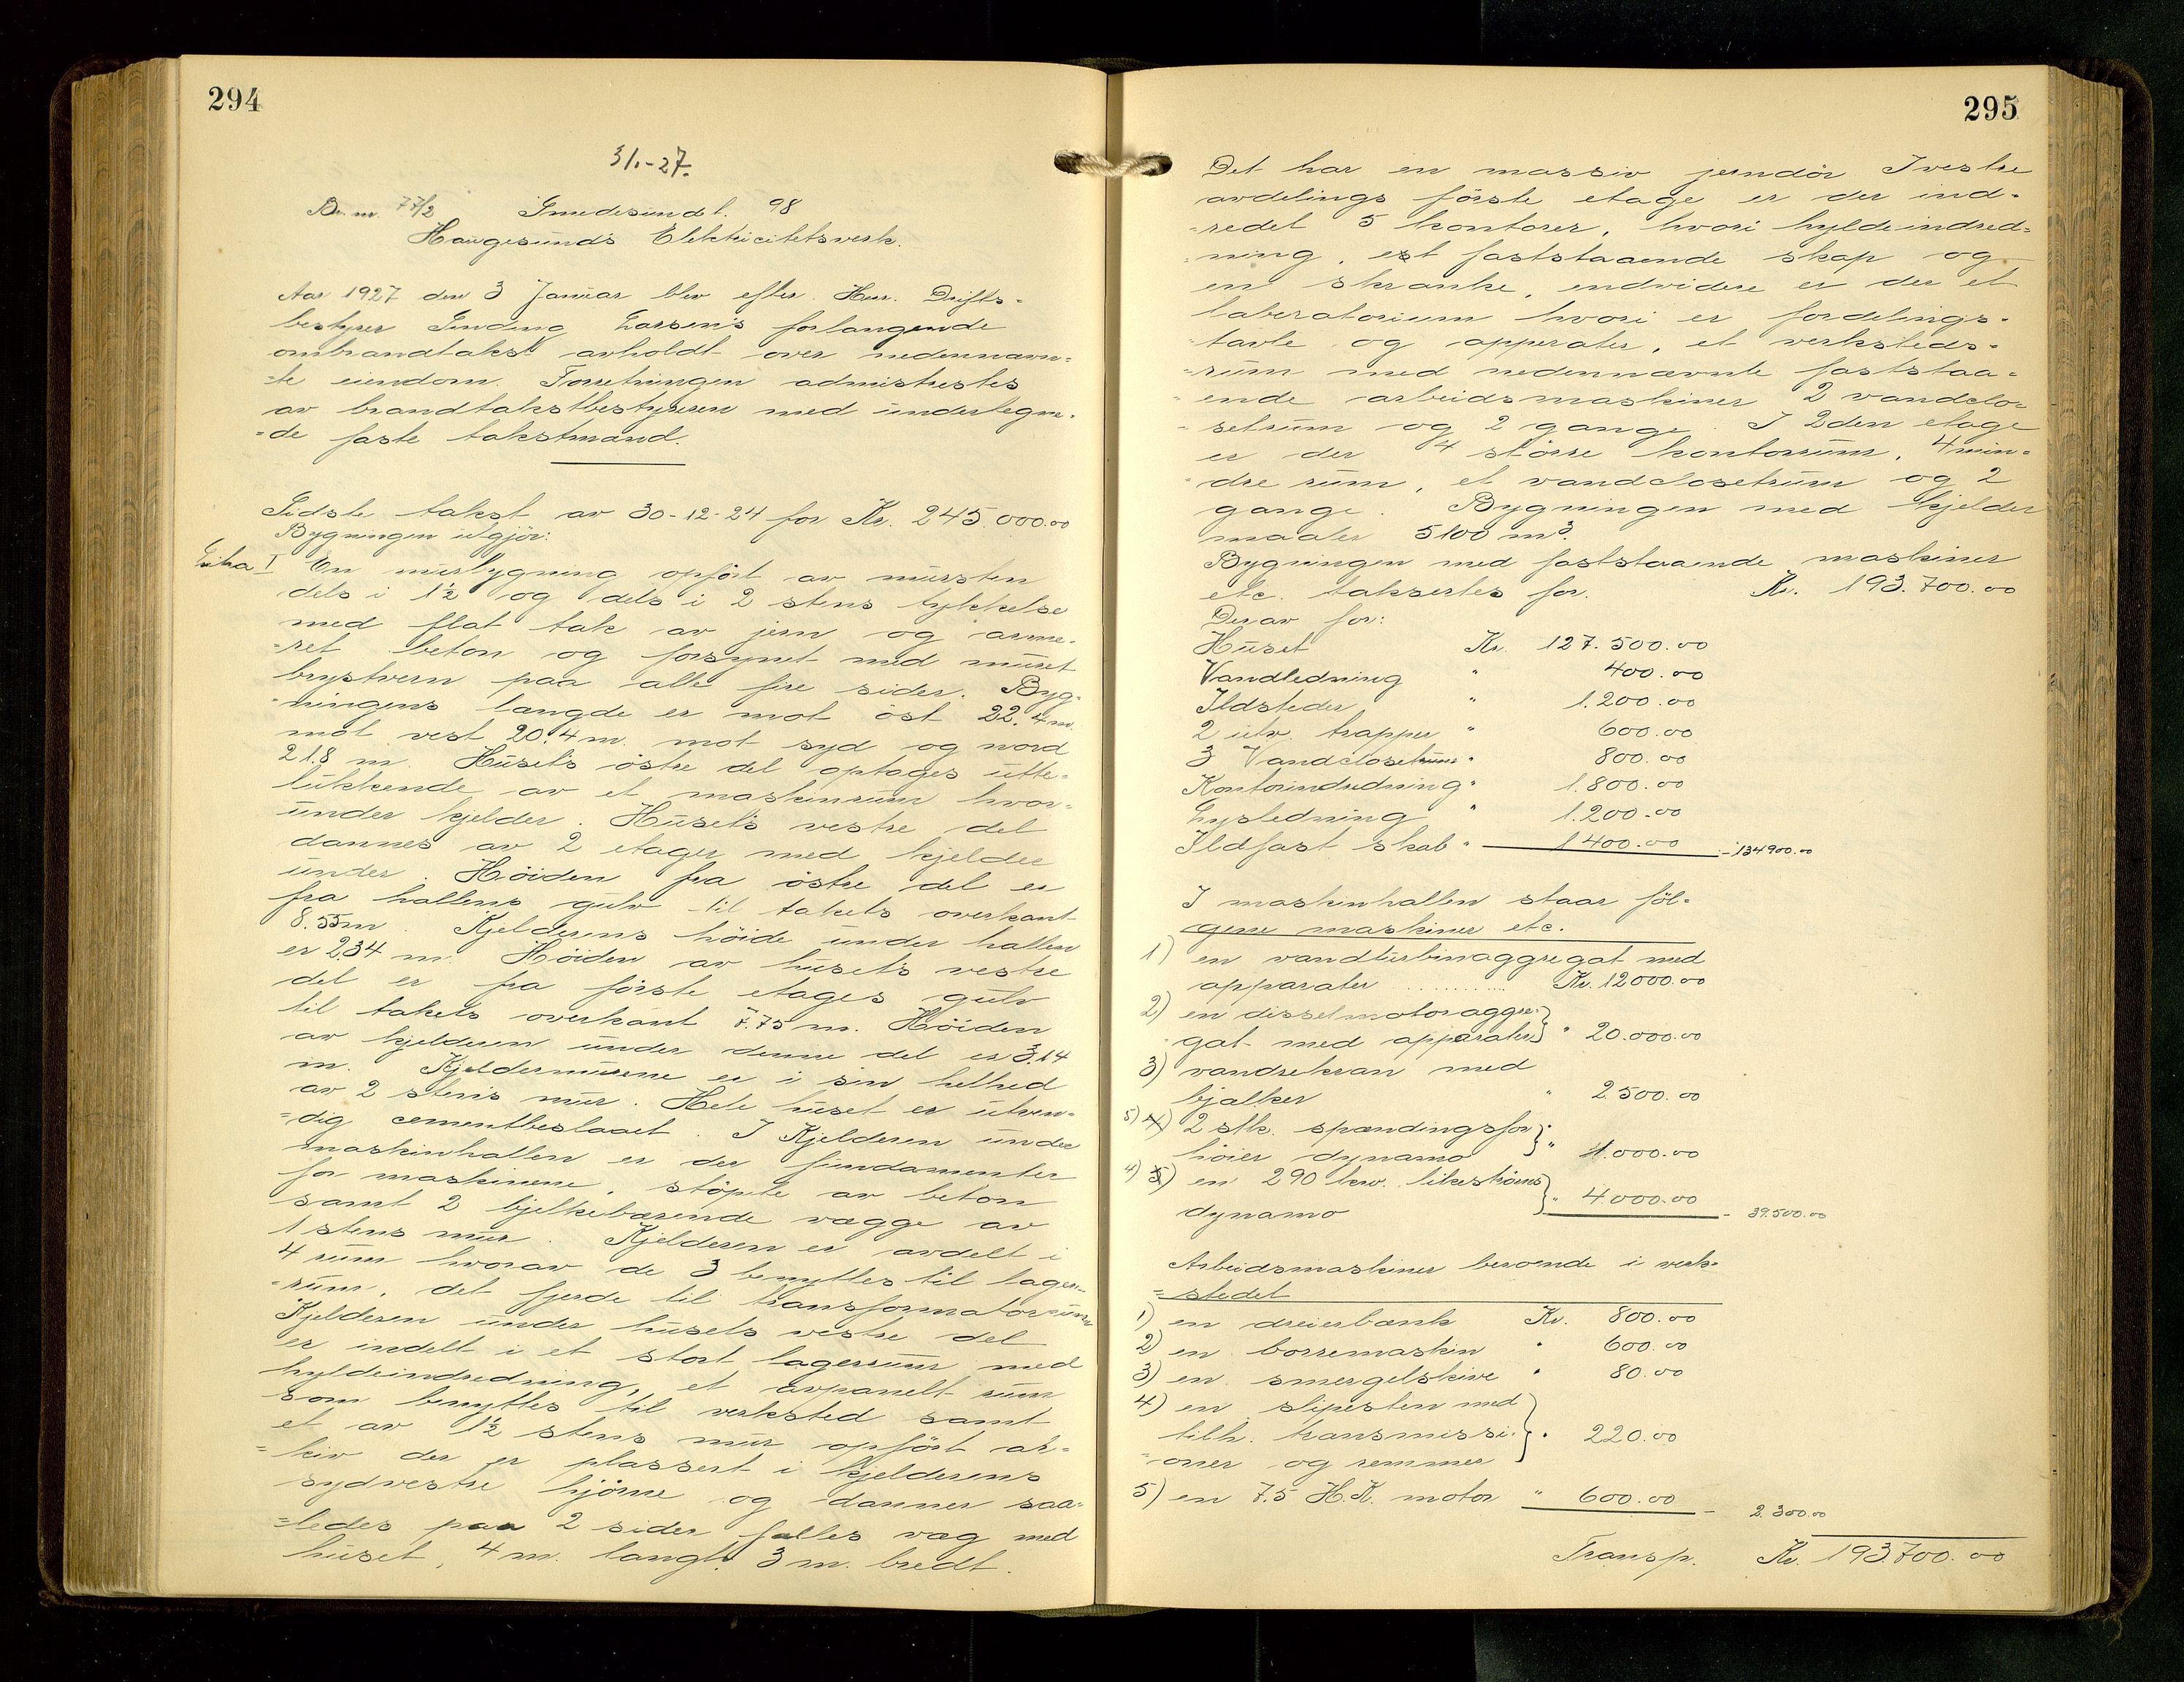 294
3/1.-27.
Br. nr. 77/2 Smedesundt. 98
Haugesunds Elektricitetsverk.
Aar 1927 den 3 Januar blev efter Herr. Drifts-
bestyrer Sending Larsen's forlangende
ombrandtakst avholdt over nedennævn-
=te eiendom. Forretningen admistrertes
av brandtakstbestyreren med undertegne-
=de faste takstmænd.
Sidste takst av 30-12-24 for Kr. 245.000.00
Bygningen utgjør:
Litra I En murbygning opført av mursten
dels i 1½ og dels i 2 stens tykkelse
med flat tak av jern og arme-
=ret beton og forsynet med muret
brystvern paa alle fire sider. Byg-
=ningens længde er mot øst 22.4 m.
mot vest 20.4 m. mot syd og nord
21.8 m. Husets østre del optages ute-
lukkende av et maskinrum hvor-
under kjelder. Husets vestre del
dannes av 2 etager med kjelder
under. Høiden fra østre del er
fra hallens gulv til takets overkant
8.55 m. Kjelderens høide under hallen
er 2.34 m. Høiden av husets vestre
del er fra første etages gulv
til takets overkant 7.75 m. Høiden
av kjelderen under denne del er 3.14
m. Kjeldermurene er i sin helhed
av 2 stens mur. Hele huset er utven-
=dig cementbeslaaet. I Kjelderen under
maskinhallen er der fundamenter
for maskinene, støpte av beton
samt 2 bjelkebærende vægge av
1 stens mur. Kjelderen er avdelt i
4 rum hvorav de 3 benyttes til lager-
=rum, det fjerde til transformatorrum
Kjelderen under husets vestre del
er indelt i et stort lagerrum med
hyldeindredning, et avpanelt rum
som benyttes til verksted samt
et av 1½ stens mur opført ar-
=kiv der er plassert i kjelderens
sydvestre hjørne og danner saa-
=ledes paa 2 sider fælles væg med
huset, 4 m. langt, 3 m. bredt.
295
Det har en massiv jerndør I vestre
avdelings første etage er der ind-
=redet 5 kontorer, hvori hyldeindred=
=ning, et faststaaende skap og
en skranke, endvidere er der et
laboratorium hvori er fordelings-
tavle og apperater, et verksteds-
=rum med nedennævnte faststaa-
=ende arbeidsmaskiner 2 vandclo-
=setrum og 2 gange. I 2den etage
er der 4 større kontorrum, 4 min-
=dre rum, et vandclosetrum og 2
gange. Bygningen med kjelder
maaler 5100 m³.
Bygningen med faststaaende maskiner
etc. takseres for. Kr. 193.700.00
Derav for:
Huset Kr. 127.500.00
Vandledning " 400.00
Ildsteder " 1.200.00
2 utv. trapper " 600.00
3 Vandclosetrum " 800.00
Kontorindredning " 1.800.00
Lysledning " 1.200.00
Ildfast skab " 1400.00 - 134900.00
I maskinhallen staar føl-
gene maskiner etc.
1) en vandturbinaggregat med
apparater .......... Kr. 12000.00
2) en disselmotoraggre-
gat med apparater } " 20.000.00
3) vandrekran med
bjælker " 2500.00
5) 4) 2 stk. spændingsfor-
høier dynamo } " 1.000.00
4) 5) en 290 kw. likestrøms
dynamo } " 4000.00 - 39.500.00
Arbeidsmaskiner beroende i verk-
=stedet
1) en dreierbænk Kr. 800.00
2) en borremaskin " 600.00
3) en smergelskive " 80.00
4) en slipesten med
tilh. transmissi-
=oner og remmer } " 220.00
5) en 7.5 H.K. motor " 600.00 - 2.300.00
Transp. Kr. 193.700.00